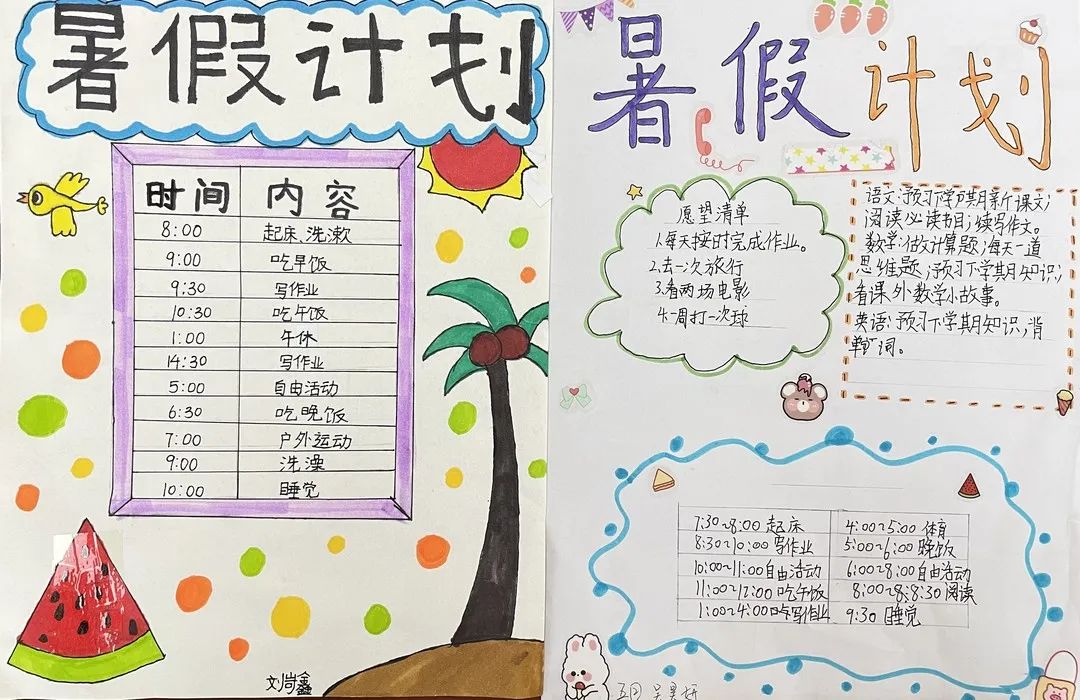 暑假计划
时间 内容
8:00 起床、洗漱
9:00 吃早饭
9:30 写作业
10:30 吃午饭
1:00 午休
14:30 写作业
5:00 自由活动
6:30 吃晚饭
7:00 户外运动
9:00 洗澡
10:00 睡觉
暑假计划
愿望清单
1.每天按时完成作业。
2.去一次旅行
3.看两场电影
4.一周打一次球
语文:预习下学期新课文;
阅读必读书目;读写作文。
数学:做计算题;每天一道
思维题;预习下学期知识;
看课外数学小故事。
英语:预习下学期知识,背
单词。
7:30~8:00 起床 4:00~5:00 体育
8:30~10:00 写作业 5:00~6:00 晚饭
10:00~11:00 自由活动 6:00~8:00 自由活动
11:00~12:00 吃午饭 8:00~8:8:30 阅读
1:00~4:00 写作业 9:30 睡觉